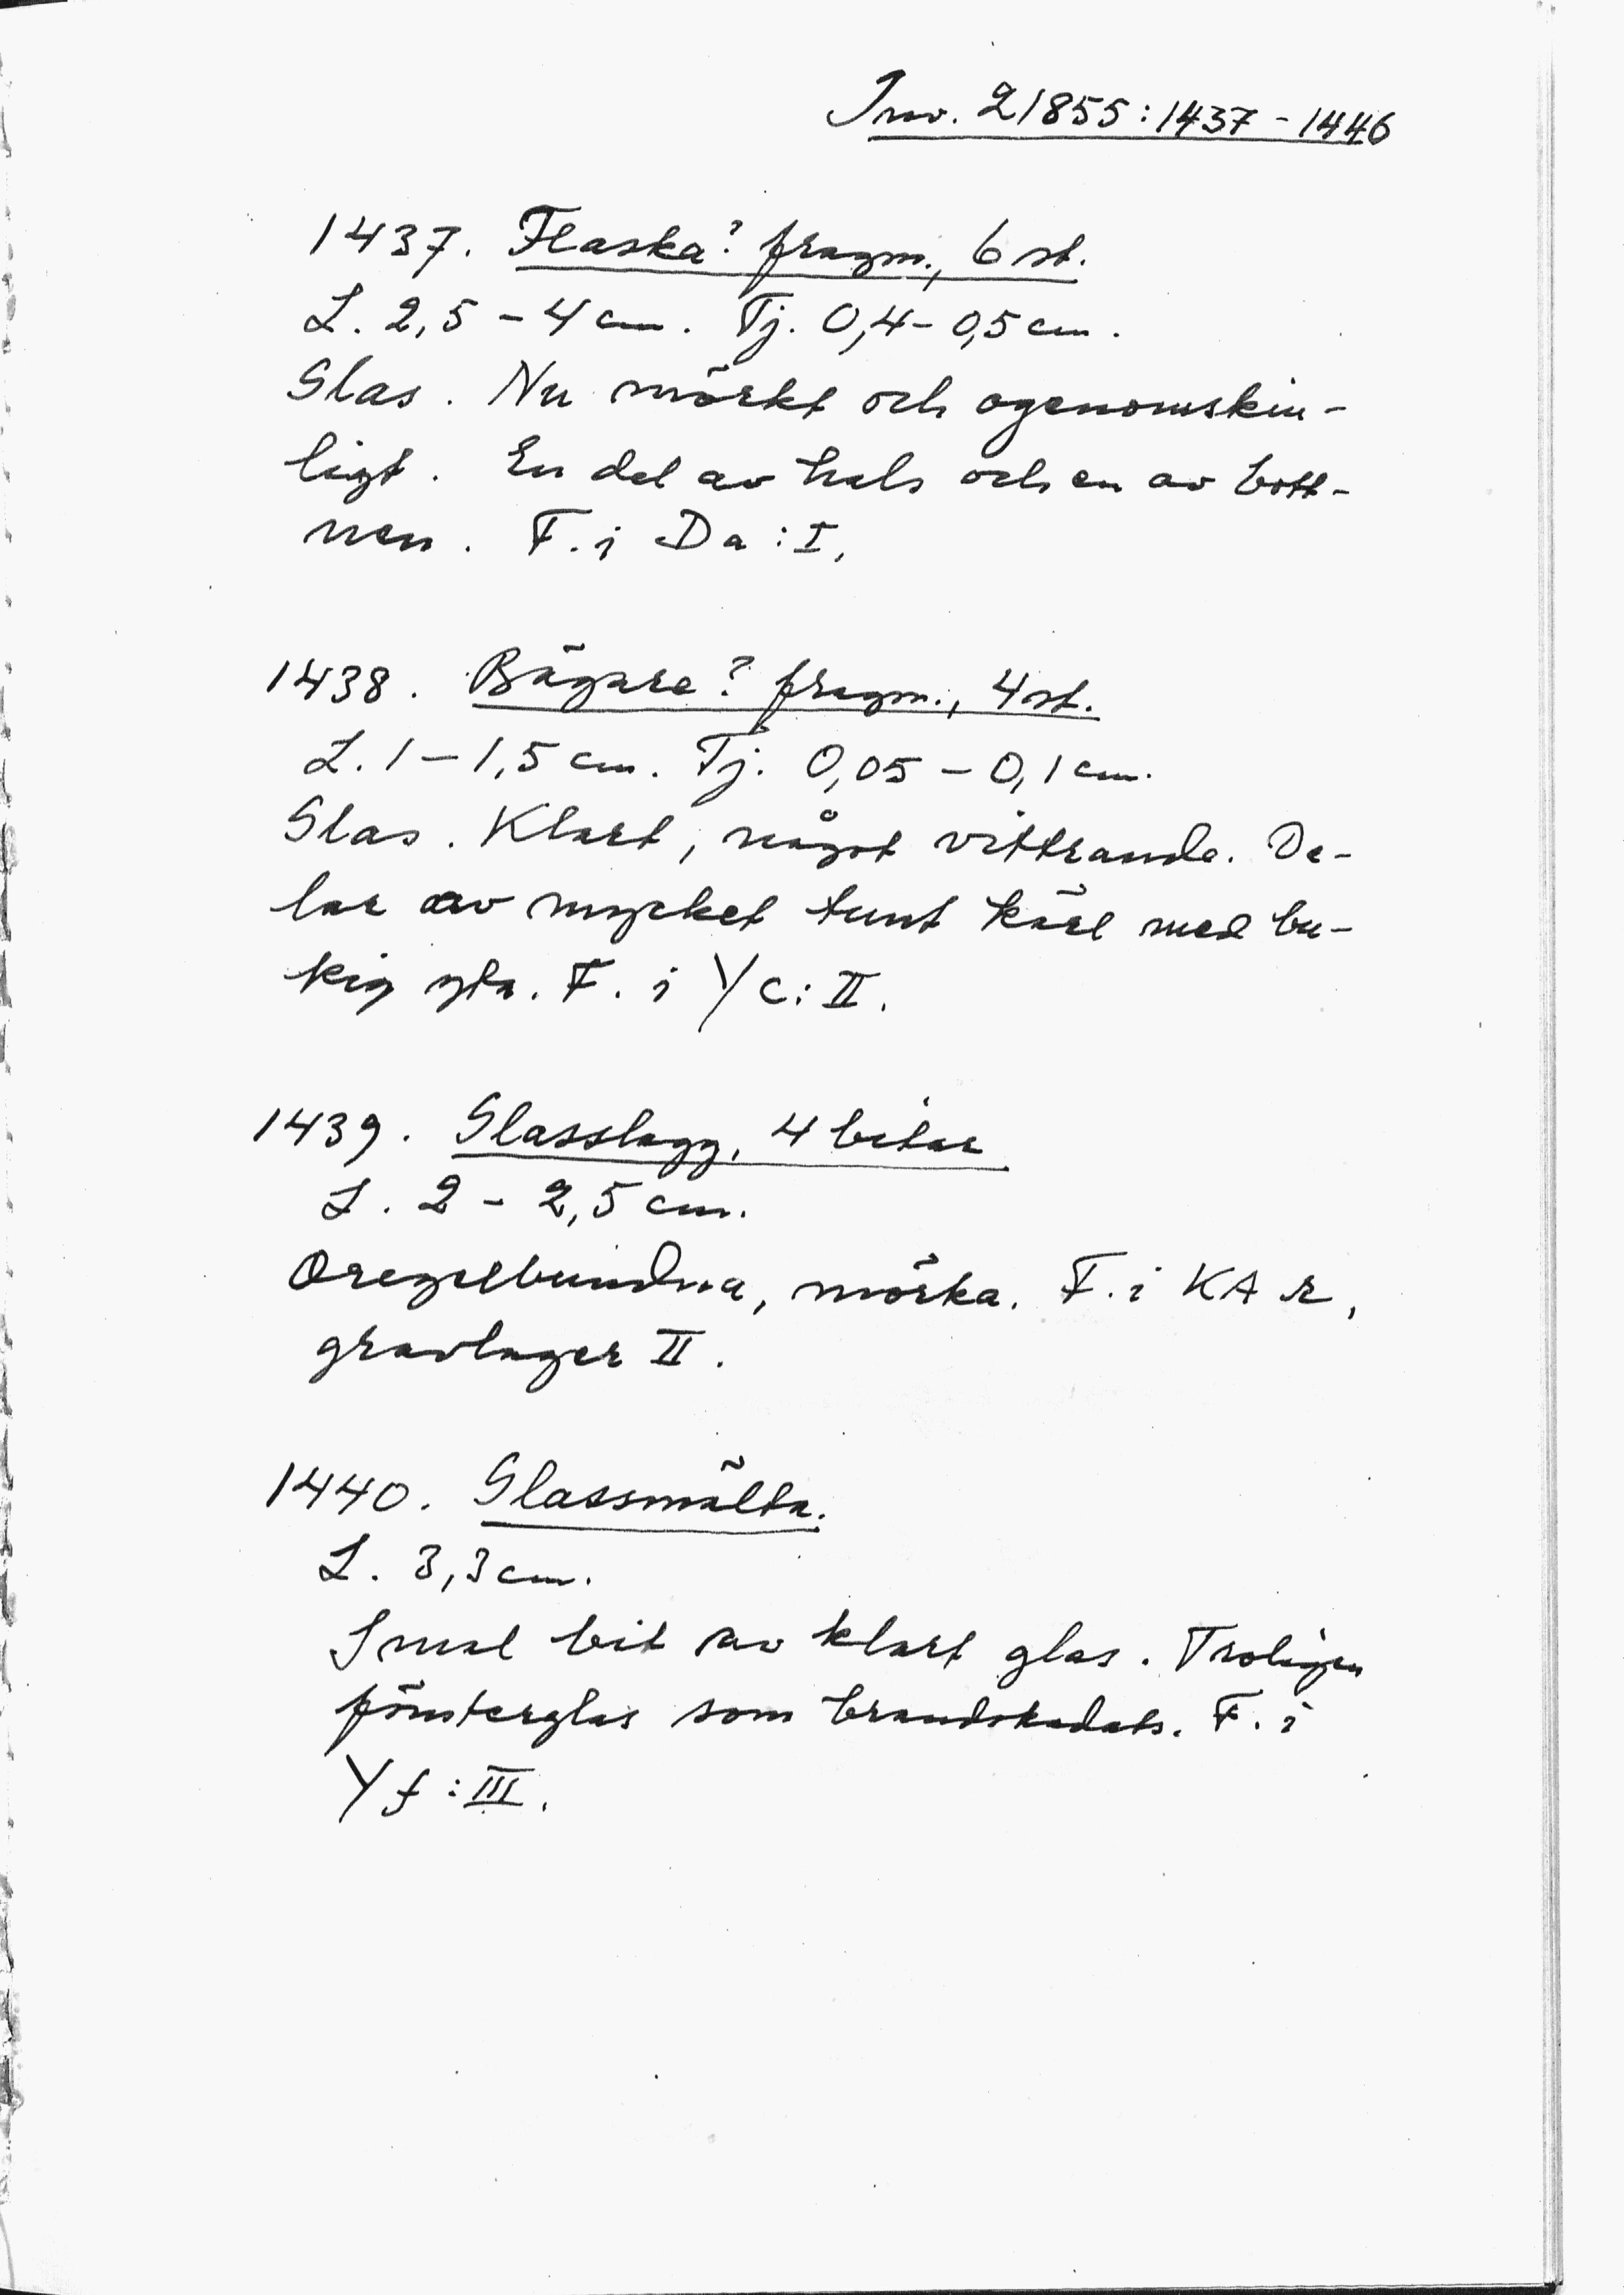 Inv. 21855:1437-1446
1437. Flaska? fragm., 6 st.
L. 2,5 - 4 cm. Tj. 0,4 - 0,5 cm.
Glas. Nu mörkt och ogenomskin-
ligt. En del av hals och en av bott-
nen. F. i Da:I.
1438. Bägare? fragm., 4 st.
L. 1 - 1,5 cm. Tj. 0,05 - 0,1 cm.
Glas. Klart, något vittrande. De-
lar av mycket tunt kärl med bu-
kig yta. F. i Yc:II.
1439. Glasslagg, 4 bitar
L. 2 - 2,5 cm.
Oregelbundna, mörka. F. i KA r,
gravlager II.
1440. Glassmälta.
L. 3,3 cm.
Smal bit av klart glas. Troligen
fönsterglas som brandskadats. F. i
Yf:III.